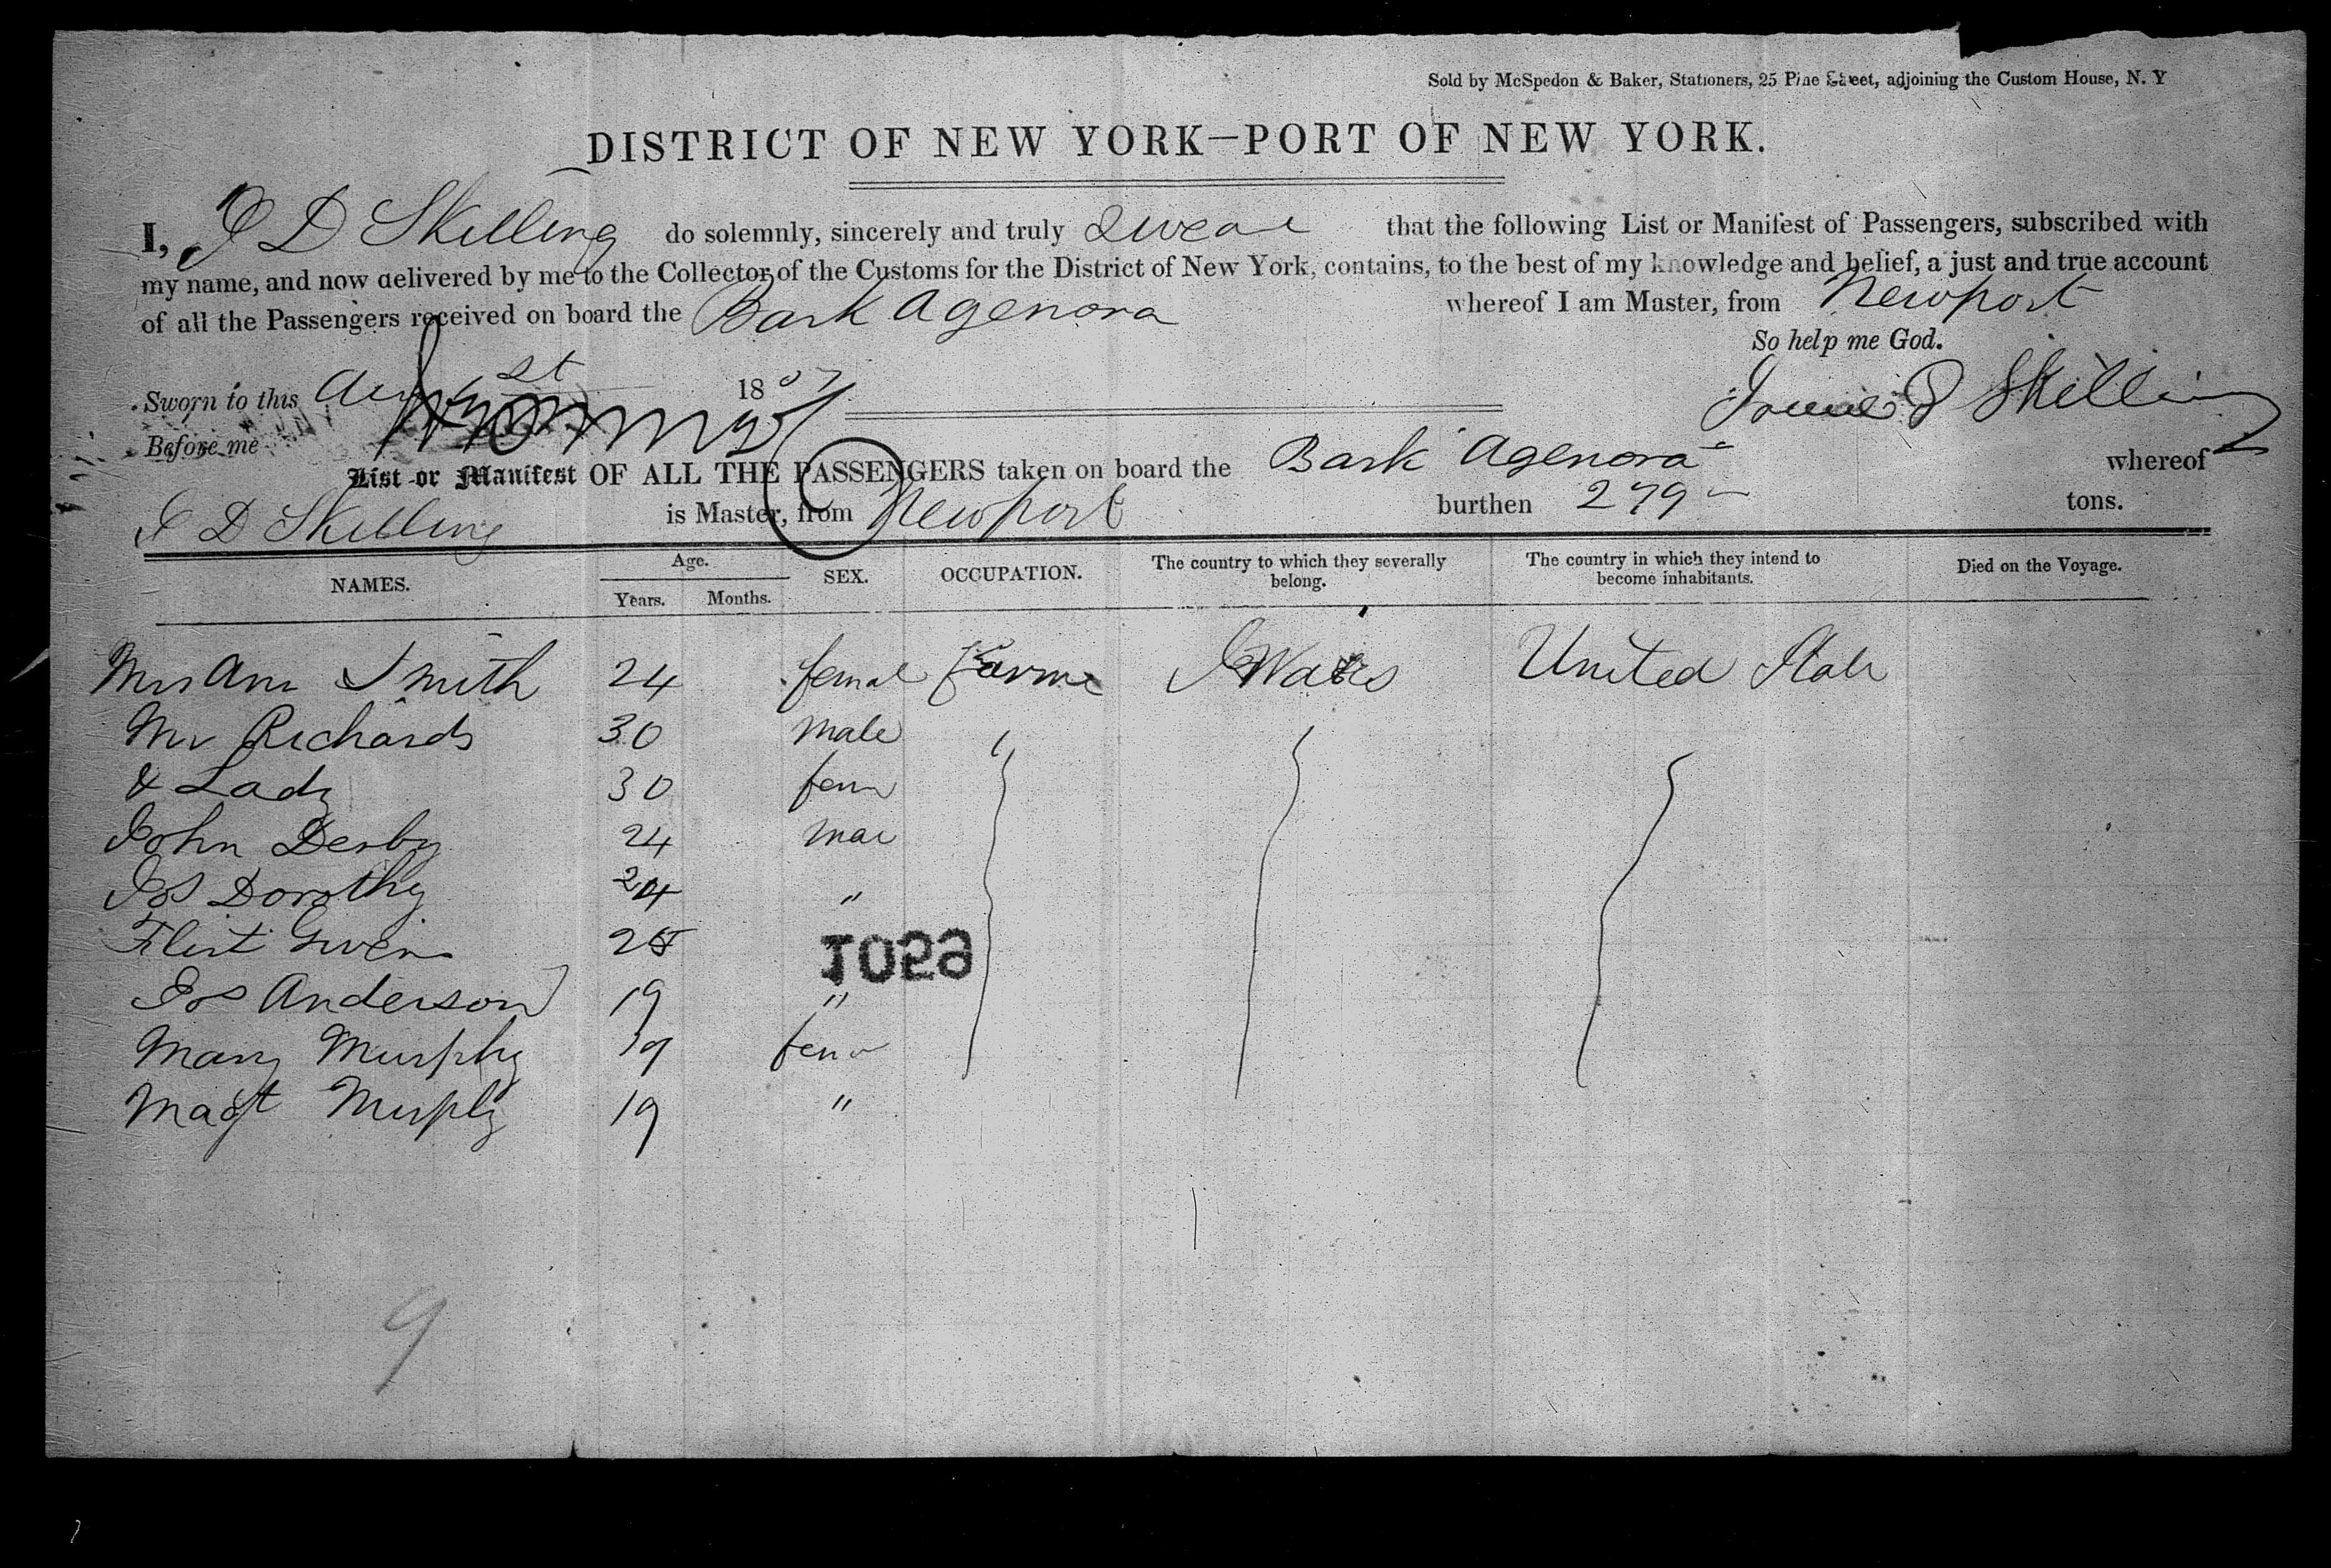 Sold by McSpedon & Baker, Stationers, 25 Pine Street, adjoining the Custom House, N. Y
DISTRICT OF NEW YORK—PORT OF NEW YORK.
I, J D Skilling do solemnly, sincerely and truly swear that the following List or Manifest of Passengers, subscribed with
my name, and now delivered by me to the Collector of the Customs for the District of New York, contains, to the best of my knowledge and belief, a just and true account
of all the Passengers received on board the Bark Agenora whereof I am Master, from Newport
So help me God.
Sworn to this 18
D Skilling
Before me
List or Manifest OF ALL THE PASSENGERS taken on board the Bark Agenora whereof
J D Skilling is Master, from Newport burthen 279 tons.
NAMES. Age. Years. Months. SEX. OCCUPATION. The country to which they severally belong. The country in which they intend to become inhabitants. Died on the Voyage.
Mrs Ann Smith 24 femal Farme Wales United State
Mr Richards 30 male
& Lady 30 fem
John Derby 24 mae
Jos Dorothy 24 "
Flint 25
1059
Jos Anderson 19 "
Mary Murphy 19 fem
Magt Murphy 19 "
9